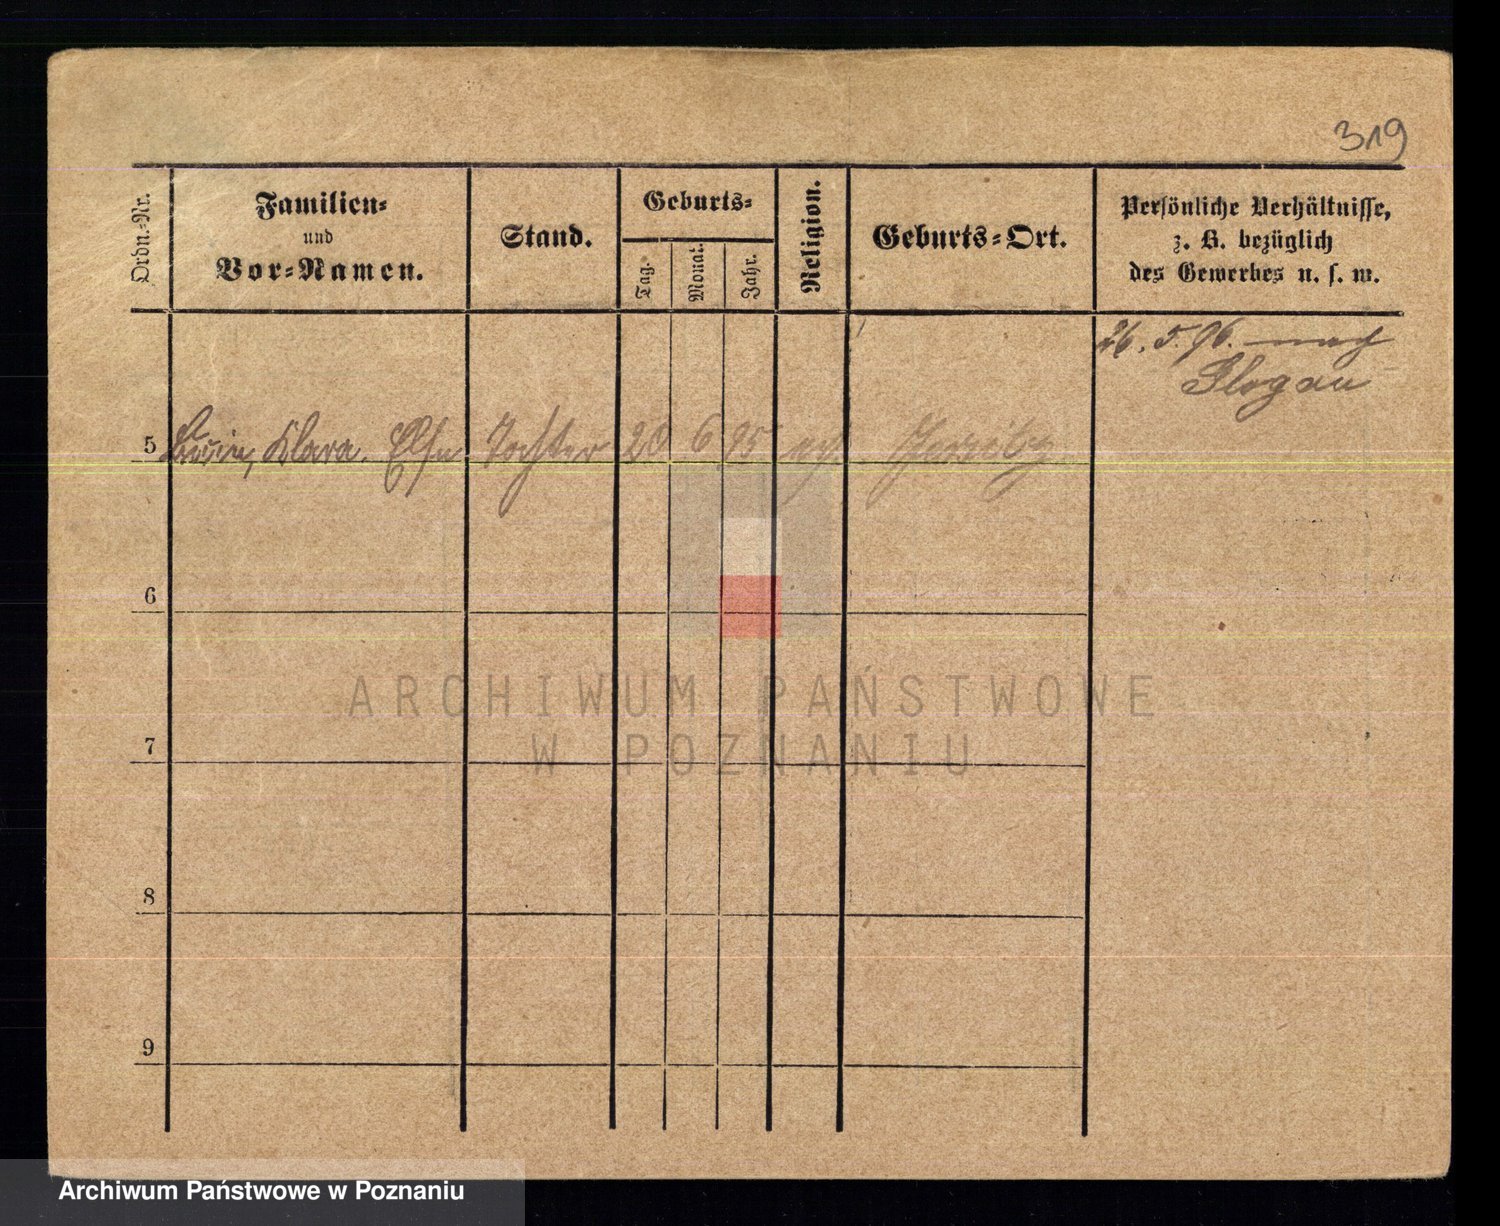 319
Ordn.-Nr.
Familien-
und
Vor-Namen.
Stand.
Geburts-
Tag.
Monat.
Jahr.
Religion.
Geburts-Ort.
Persönliche Verhältnisse,
z. B. bezüglich
des Gewerbes u. s. w.
26. 5. 96. nach
Glogau
5 Klara, Else Tochter 20 6 95 Jersitz
6
7
8
9
ARCHIWUM PAŃSTWOWE
W POZNANIU
Archiwum Państwowe w Poznaniu